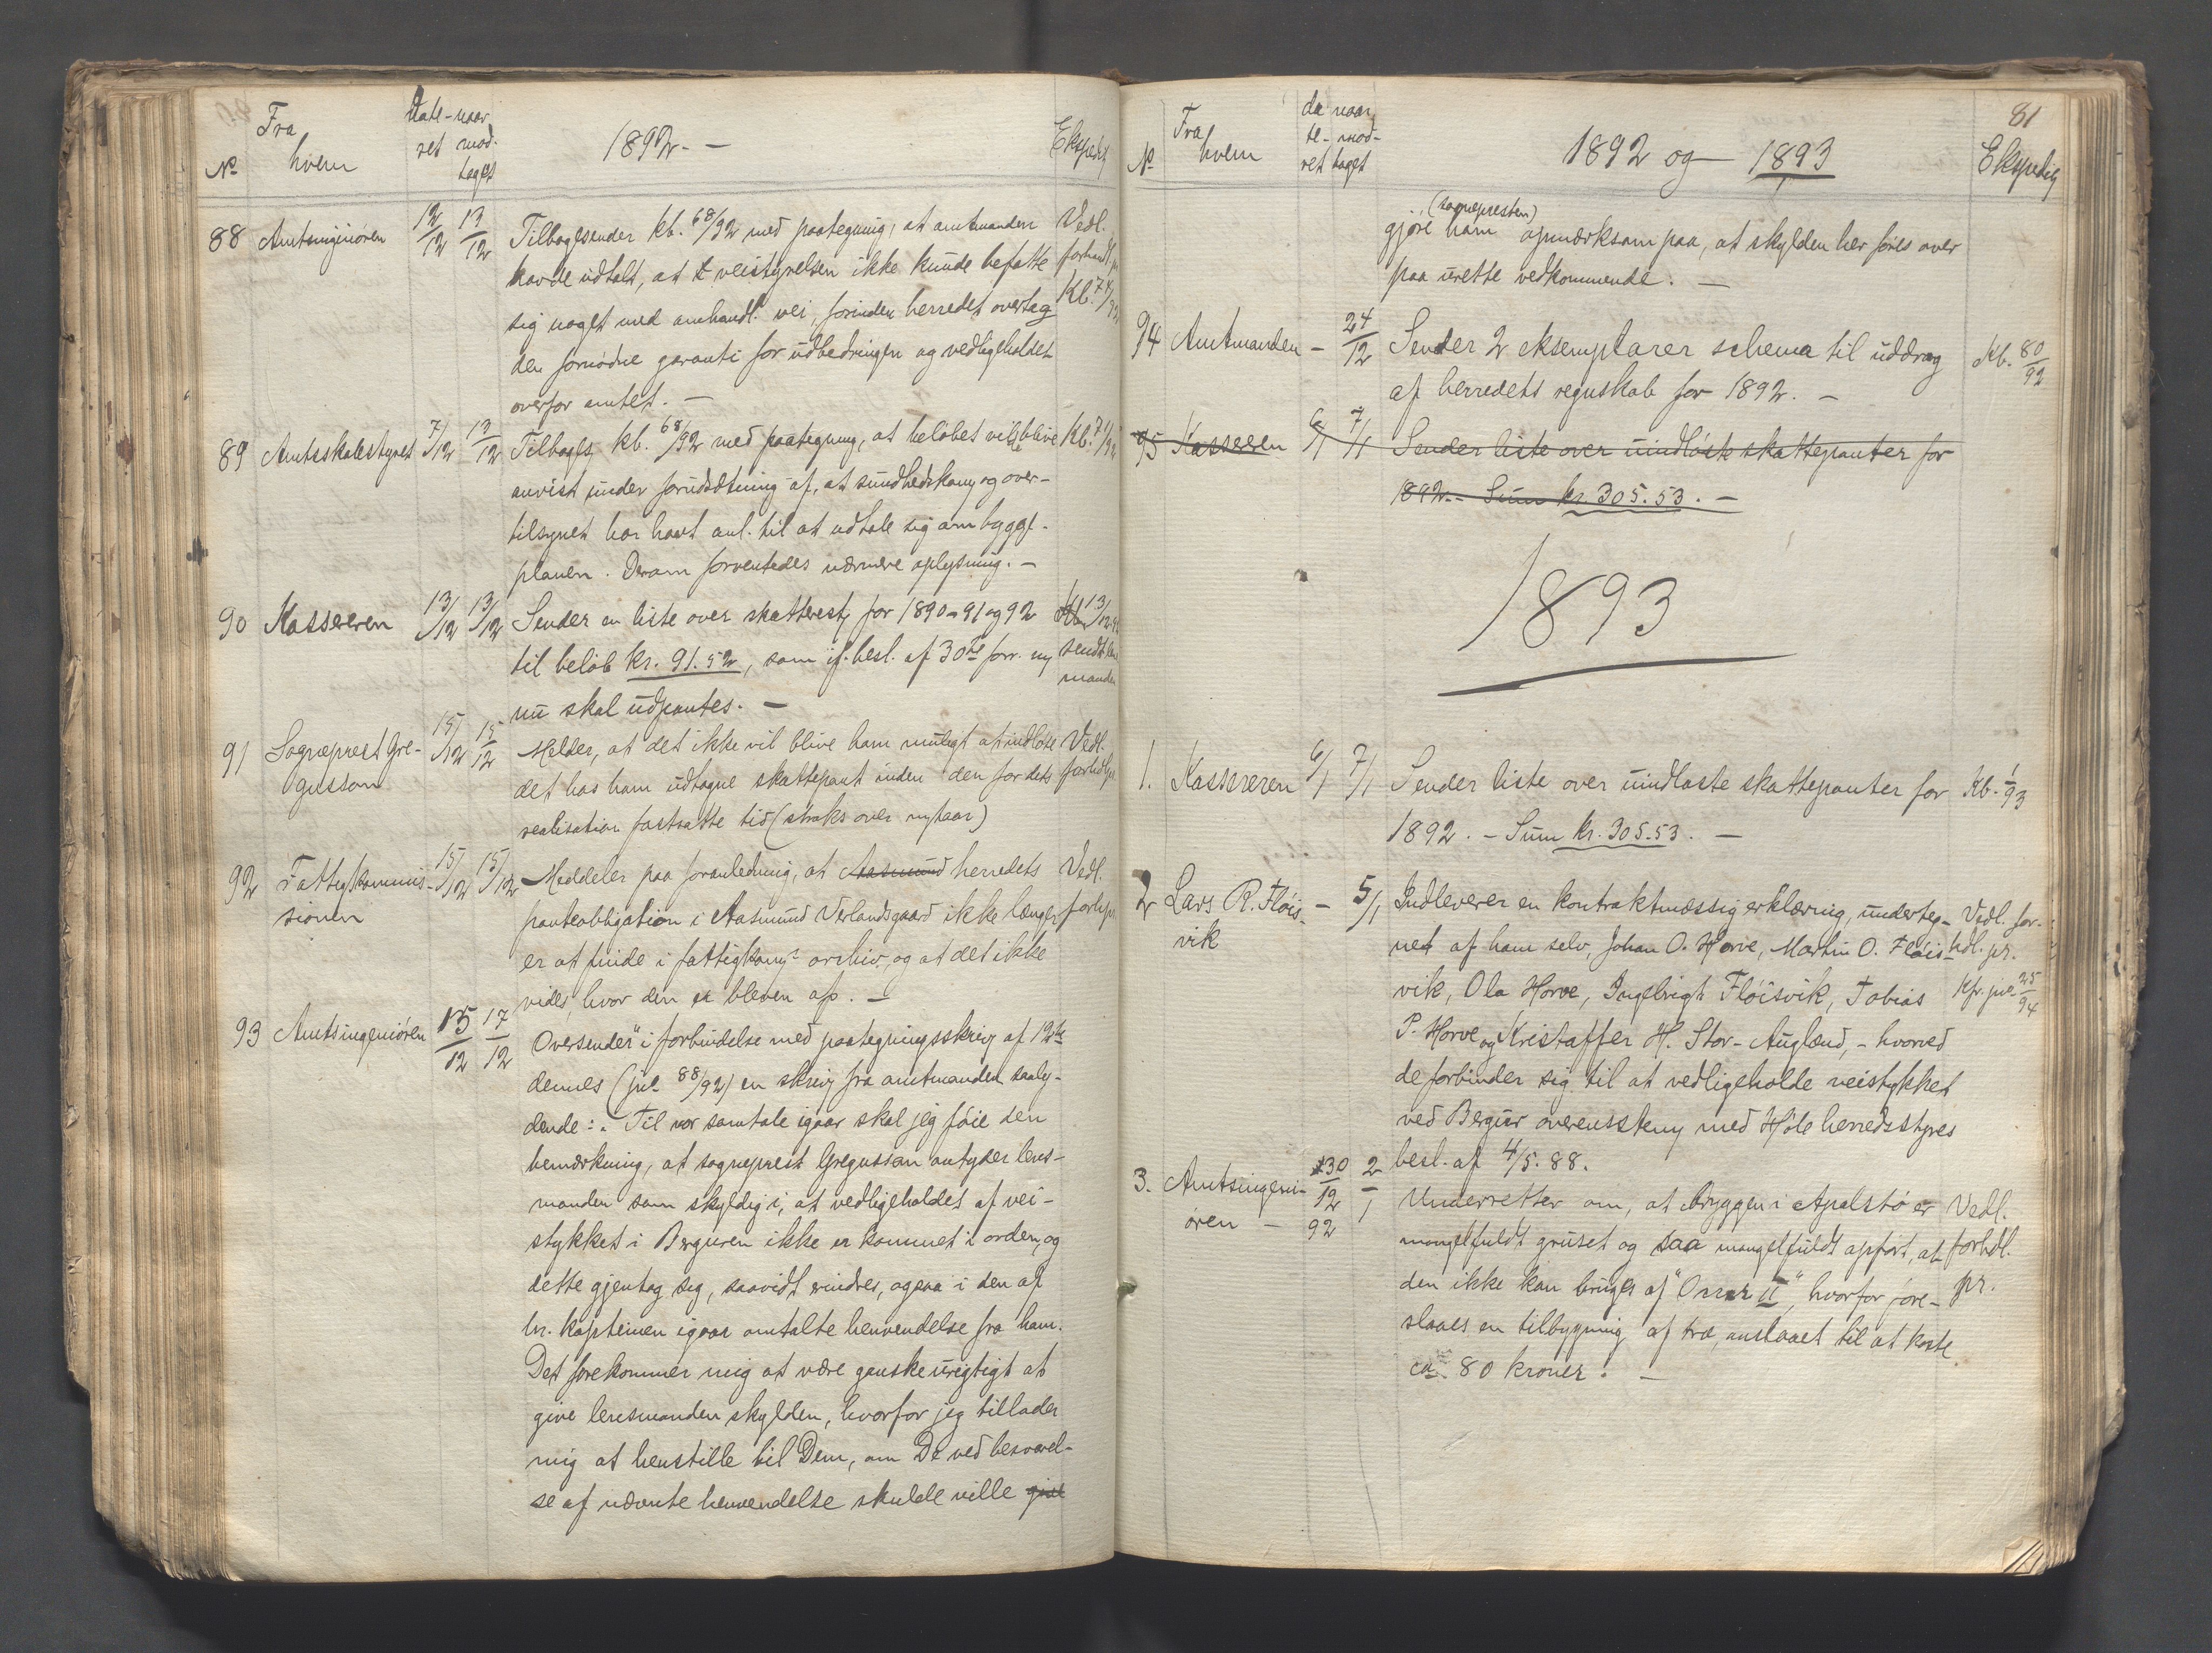 Fra
No hvem
date- naar
ret mod-
taget
1892. —
Eksped
88 Amtsingeniøren 12/12 13/12 Tilbagesender kb. 68/92 med paategning, at amtmanden Vedl.
havde udtalt, at veistyrelsen ikke kunde befatte forhandl
sig noget med omhandl. vei, forinden herredet overtag Kb.
den fornødne garanti for udbedringen og vedligeholdet
overfor amtet. —
89 Amtsskolestyret 7/12 13/12 Tilbages. kb. 68/92 med paategning, at beløbet vil blive Kb.
anvist under forudsætning af, at sundhedskom. og over-
tilsynet har havt anl. til at udtale sig om bygge-
planen. Derom forventedes nærmere oplysning. —
90 Kassereren 13/12 13/12 Sender en liste over skatterest. for 1890 - 91 og 92 13/12
til beløb kr. 91.52, som if. besl. af 30te forr. sendt
nu skal udpantes. — manden
91 Sogneprest Gre- 15/12 15/12 Melder, at det ikke vil blive ham muligt at indløse Vedl.
gusson det hos ham udtagne skattepant inden den for dets
realisation fastsatte tid (straks over nytaar)
92 Fattigkommis- 15/12 15/12 Meddeler paa foranledning, at Aasmund herredets Vedl.
sionen panteobligation i Aasmund Verlandsgaard ikke længer
er at finde i fattigkoms arkiv, og at det ikke
vides, hvor den er bleven af. —
93 Amtsingeniøren 15/12 17/12 Oversender "i forbindelse med paategningsskriv af 12te
dennes (jnl 88/92) en skriv. fra amtmanden saaly-
dende: "Til vor samtale igaar skal jeg føie den
bemærkning, at sogneprest Gregusson antyder lens-
manden som skyldig i, at vedligeholdet af vei-
stykket i Berguren ikke er kommet i orden, og
dette gjentog sig, saavidt erindres, ogsaa i den af
hr. kapteinen igaar omtalte henvendelse fra ham.
Det forekommer mig at være ganske urigtigt at
give lensmanden skylden, hvorfor jeg tillader
mig at henstille til Dem, om De ved besvarel-
se af nævnte henvendelse skulde ville give
81
Fra
No hvem
da naar
te- mod-
ret taget
1892 og 1893
Ekspedity
(sognepresten)
gjøre ham opmærksom paa, at skylden her føres over
paa urette vedkommende. —
94 Amtmanden — 24/12 Sender 2 eksemplarer schema til uddrag Kb. 80/92
af herredets regnskab for 1892. —
95 Kassereren 6/1 7/1 Sender liste over uindløste skattepanter for
1892. - Sum kr. 305.53. —
1893
1. Kassereren 6/1 7/1 Sender liste over uindløste skattepanter for Kb. 1/93
1892. - Sum kr. 305.53. —
2 Lars R. Fløis- — 5/1 Indleverer en kontraktmæssig erklæring, underteg- Vedl. for-
vik net af ham selv, Johan O. Horve, Martin O. Fløis- hdl. pr.
vik, Ola Horve, Ingebrigt Fløisvik, Tobias Kfr. jnl. 25/94
P. Horve og Kristoffer H. Stor-Auglænd, - hvorved
de forbinder sig til at vedligeholde veistykket
ved Bergur overensstem. med Høle herredsstyres
besl. af 4/5. 88.
3. Amtsingeni- 30/12 92 2/1 Underretter om, at bryggen i Apalstø er Vedl.
øren — mangelfuldt gruset og saa mangelfuldt opført, at forhdl.
den ikke kan bruges af "Oscar II", hvorfor fore- pr.
slaaes en tilbygning af træ, anslaaet til at koste
ca 80 kroner. —